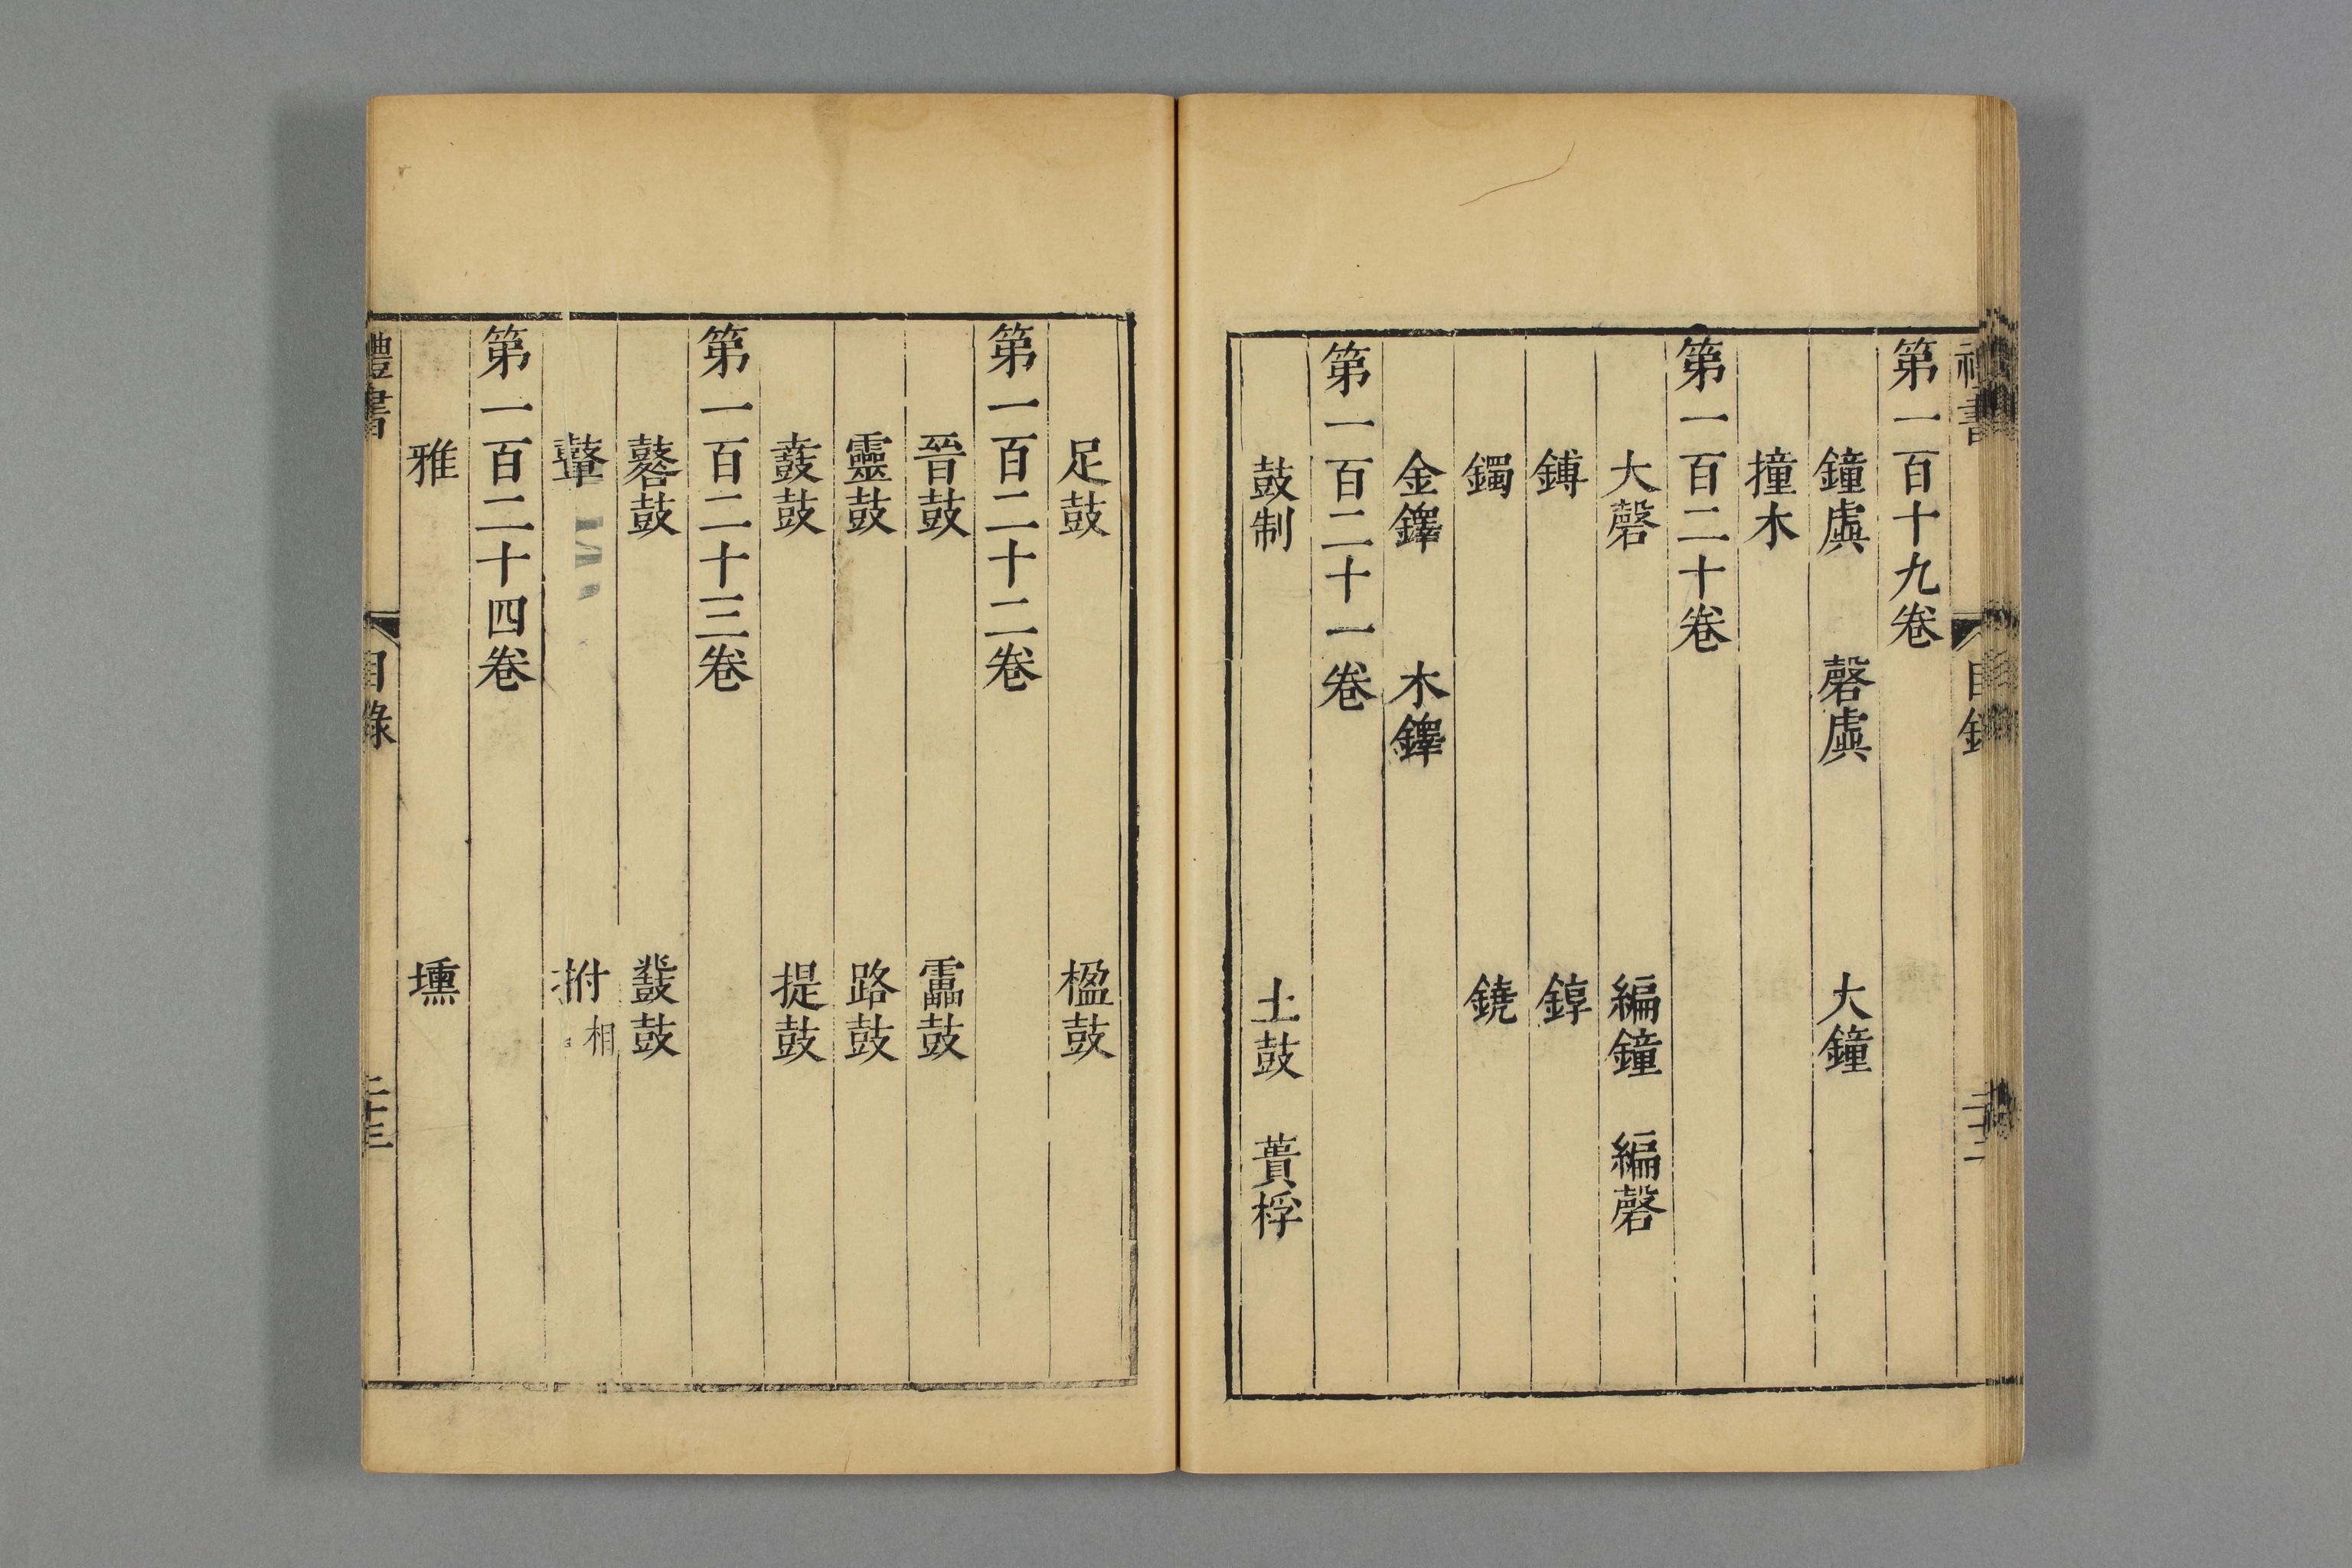 第一百十九卷
鐘虡　磬虡　大鐘
撞木
第一百二十卷
大磬　編鐘　編磬
鎛　錞
鐲　鐃
金鐸　木鐸
第一百二十一卷
鼓制　土鼓　蕢桴
足鼓　楹鼓
第一百二十二卷
晉鼓　靁鼓
靈鼓　路鼓
鼖鼓　提鼓
第一百二十三卷
鼛鼓　鼓
拊　相
第一百二十四卷
雅　壎
禮書　目錄　二十三